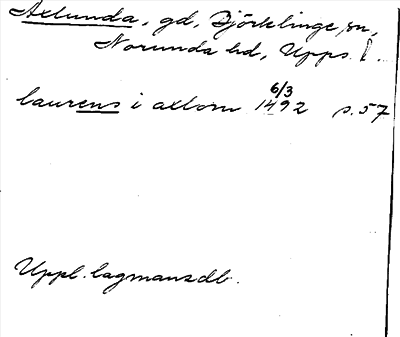 Axlunda, gd, Björklinge sn,
Norunda hd, Upps. l.
6/3
laurens i axlom 1492 s. 57
Uppl. lagmansdb.